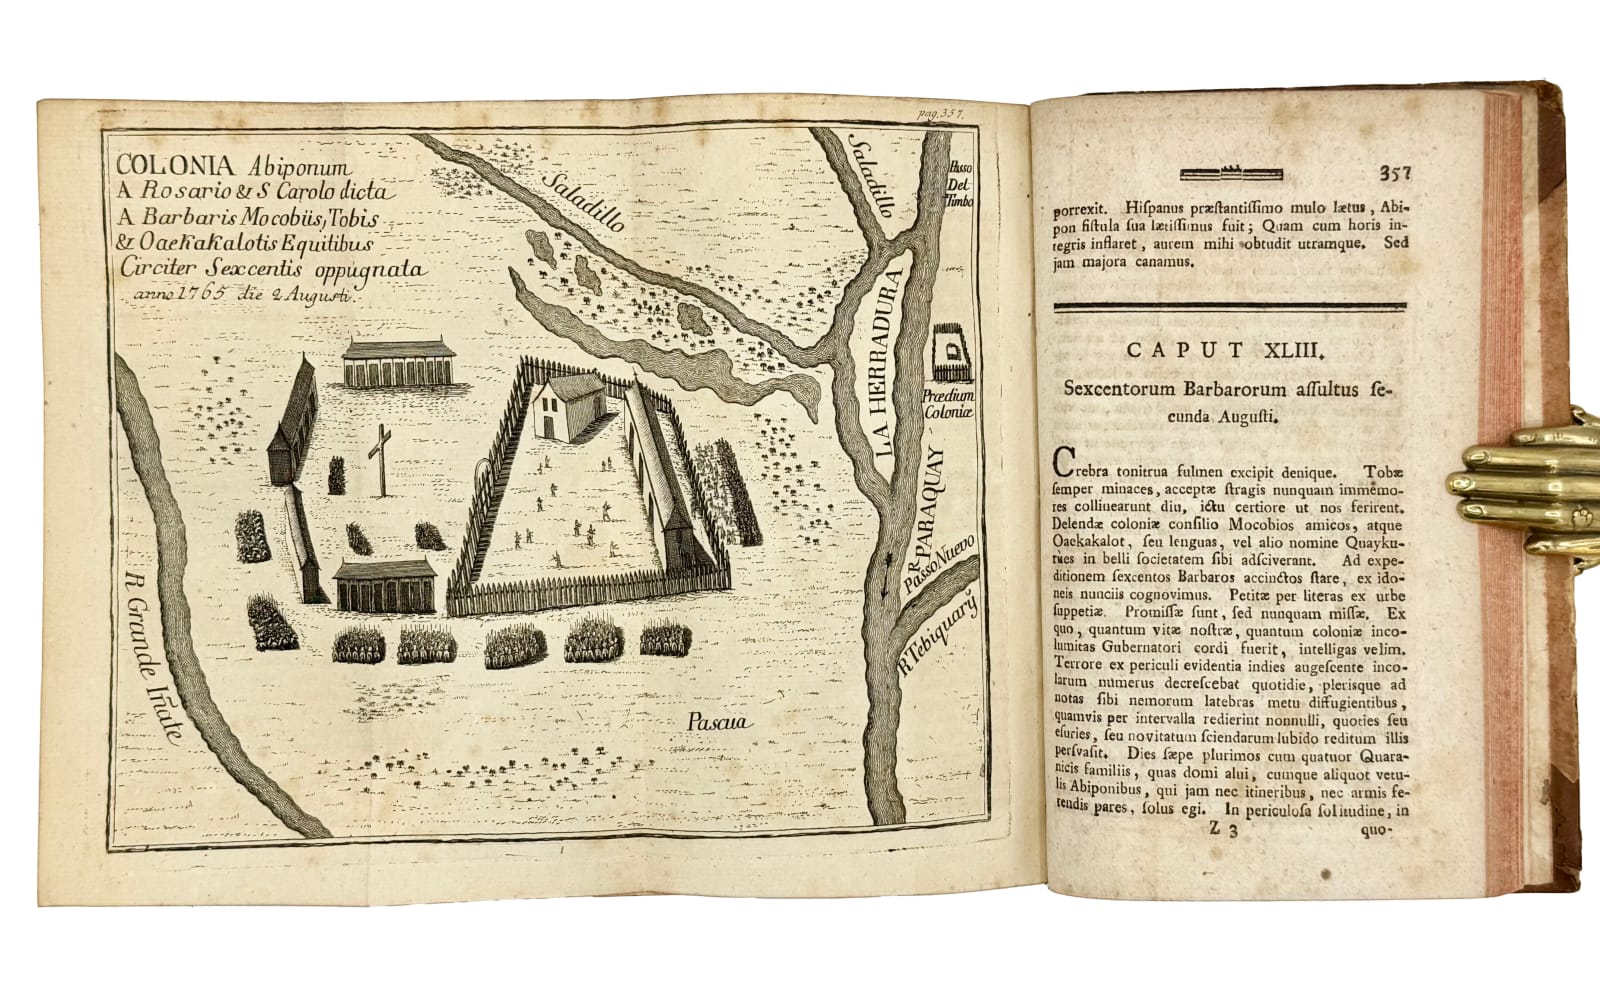 pag. 357.
COLONIA Abiponum
A Rosario & S Carolo dicta
A Barbaris Mocobiis, Tobis
& Oaekakalotis Equitibus
Circiter Sexcentis oppugnata
anno 1765 die 2 Augusti.
Saladillo
Saladillo
Passo
Del
Timbo
LA HERRADURA
Prædium
Coloniæ
R. PARAQUAY
Passo Nuevo
R Tebiquarÿ
R Grande Iñate
Pascua
357
porrexit. Hiſpanus præſtantiſſimo mulo lætus, Abi-
pon fiſtula ſua lætiſſimus fuit; Quam cum horis in-
tegris inflaret, aurem mihi obtudit utramque. Sed
jam majora canamus.
CAPUT XLIII.
Sexcentorum Barbarorum aſſultus ſe-
cunda Auguſti.
Crebra tonitrua fulmen excipit denique. Tobæ
ſemper minaces, acceptæ ſtragis nunquam immemo-
res collinearunt diu, ictu certiore ut nos ferirent.
Delendæ coloniæ conſilio Mocobios amicos, atque
Oaekakalot, ſeu lenguas, vel alio nomine Quayku-
rües in belli ſocietatem ſibi adſciverant. Ad expe-
ditionem ſexcentos Barbaros accinctos ſtare, ex ido-
neis nunciis cognovimus. Petitæ per literas ex urbe
ſuppetiæ. Promiſſæ ſunt, ſed nunquam miſſæ. Ex
quo, quantum vitæ noſtræ, quantum coloniæ inco-
lumitas Gubernatori cordi fuerit, intelligas velim.
Terrore ex periculi evidentia indies augeſcente inco-
larum numerus decreſcebat quotidie, plerisque ad
notas ſibi nemorum latebras metu diffugientibus,
quamvis per intervalla redierint nonnulli, quoties ſeu
eſuries, ſeu novitatum ſciendarum lubido reditum illis
perſvaſit. Dies ſæpe plurimos cum quatuor Quara-
nicis familiis, quas domi alui, cumque aliquot vetu-
lis Abiponibus, qui jam nec itineribus, nec armis fe-
rendis pares, ſolus egi. In periculoſa ſolitudine, in
Z 3 quo-